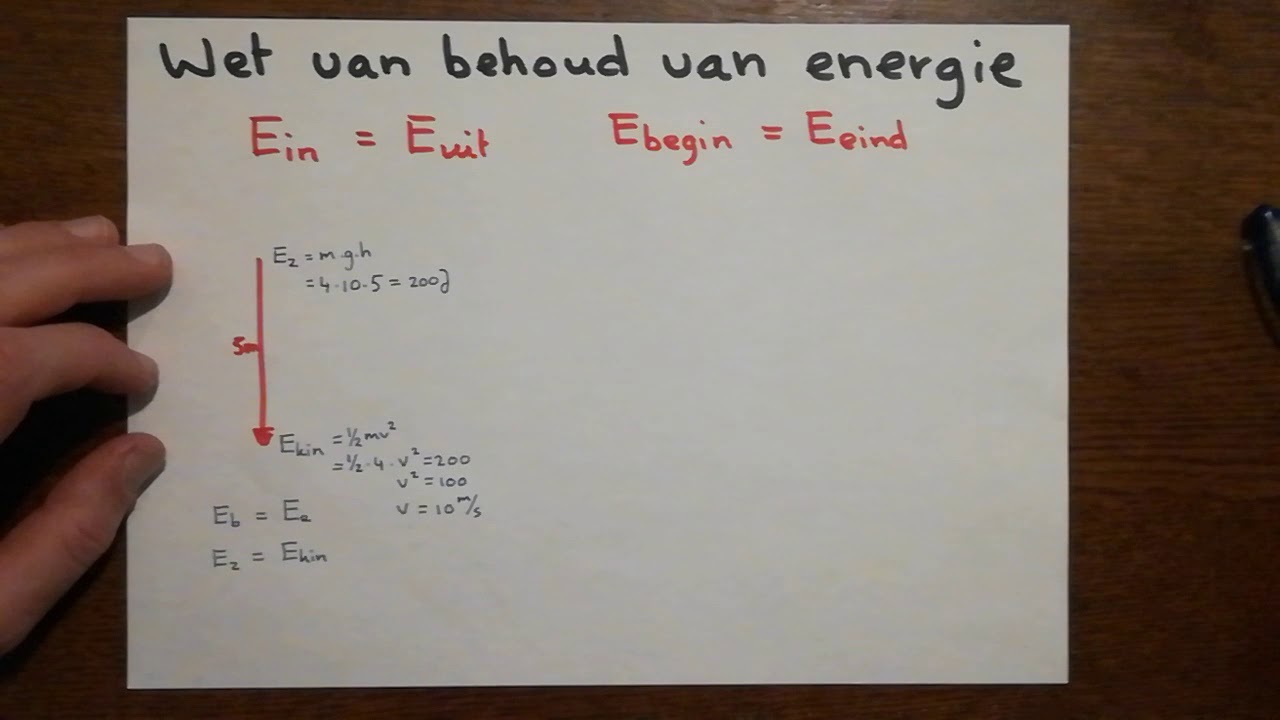 Wet van behoud van energie
Ein = Euit Ebegin = Eeind
Ez = m.g.h
= 4.10.5 = 200J
5m
Ekin = ½mv²
= ½·4·v² = 200
v² = 100
v = 10 m/s
Eb = Ee
Ez = Ekin